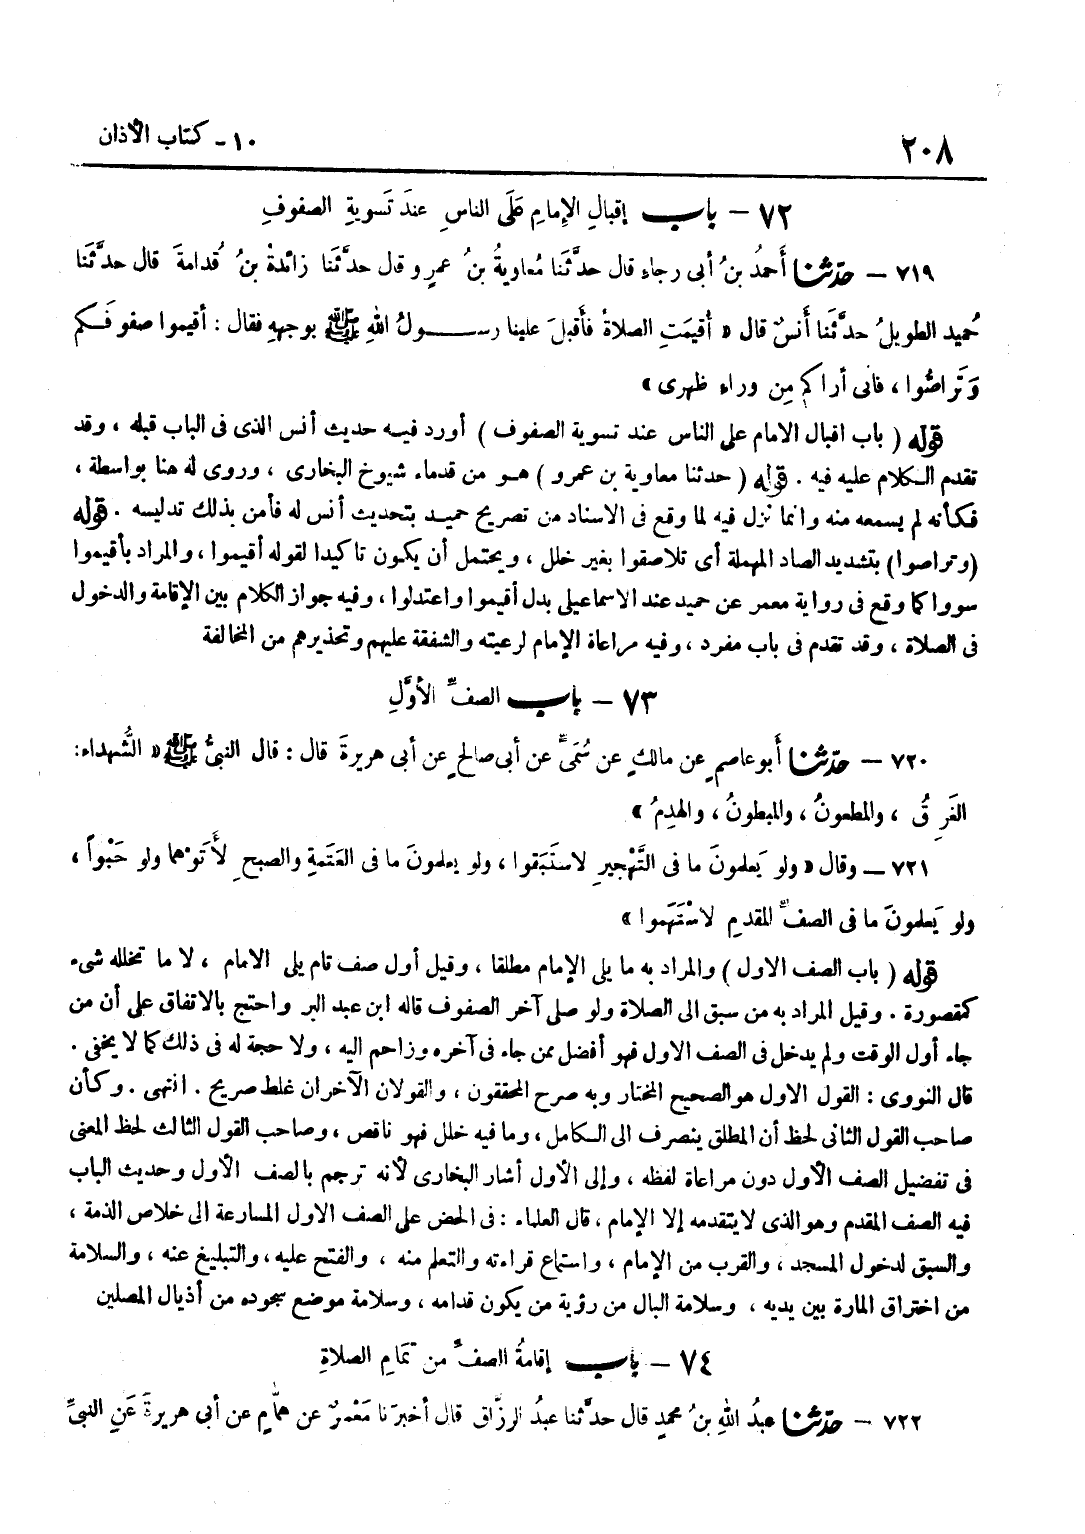 ٢٠٨
١٠ - كتاب الأذان
٧٢ - باب إقبالِ الإمامِ عَلَى الناسِ عندَ تَسويةِ الصفوفِ
٧١٩ - حدّثنا أَحمدُ بنُ أبى رجاءٍ قال حدَّثَنا مُعاويةُ بنُ عمرٍو قال حدَّثَنا زائدةُ بنُ قُدامةَ قال حدَّثَنا
حُميد الطويلُ حدَّثَنا أَنسٌ قال « أُقيمَتِ الصلاةُ فأَقبلَ علينا رسولُ اللهِ ﷺ بوجههِ فقال : أقيموا صفوفَكم
وَتَراصُّوا ، فانى أراكم مِن وراءِ ظهرى »
قوله ( باب اقبال الامام على الناس عند تسوية الصفوف ) أورد فيه حديث أنس الذى فى الباب قبله ، وقد
تقدم الكلام عليه فيه . قوله ( حدثنا معاوية بن عمرو ) هو من قدماء شيوخ البخارى ، وروى له هنا بواسطة ،
فكأنه لم يسمعه منه وانما نزل فيه لما وقع فى الاسناد من تصريح حميد بتحديث أنس له فأمن بذلك تدليسه . قوله
(وتراصوا) بتشديد الصاد المهملة أى تلاصقوا بغير خلل ، ويحتمل أن يكون تاكيدا لقوله أقيموا ، والمراد بأقيموا
سووا كما وقع فى رواية معمر عن حميد عند الاسماعيلى بدل أقيموا واعتدلوا ، وفيه جواز الكلام بين الإقامة والدخول
فى الصلاة ، وقد تقدم فى باب مفرد ، وفيه مراعاة الإمام لرعيته والشفقة عليهم وتحذيرهم من المخالفة
٧٣ - باب الصفِّ الأوَّلِ
٧٢٠ - حدّثنا أَبو عاصمٍ عن مالكٍ عن سُمَىٍّ عن أبى صالحٍ عن أبى هريرةَ قال : قال النبىُّ ﷺ « الشُّهداء :
الغَرِقُ ، والمطعونُ ، والمبطونُ ، والهدِمُ »
٧٢١ - وقال « ولو يَعلمونَ ما فى التَّهْجيرِ لاستَبَقوا ، ولو يعلمونَ ما فى العَتَمةِ والصبحِ لأَتَوْهما ولو حَبْواً ،
ولو يَعلمونَ ما فى الصفِّ المقدمِ لاسْتَهَموا »
قوله ( باب الصف الاول ) والمراد به ما يلى الإمام مطلقا ، وقيل أول صف تام يلى الامام ، لا ما تخلله شىء
كمقصورة . وقيل المراد به من سبق الى الصلاة ولو صلى آخر الصفوف قاله ابن عبد البر واحتج بالاتفاق على أن من
جاء أول الوقت ولم يدخل فى الصف الاول فهو أفضل ممن جاء فى آخره وزاحم اليه ، ولا حجة له فى ذلك كما لا يخفى .
قال النووى : القول الاول هو الصحيح المختار وبه صرح المحققون ، والقولان الآخران غلط صريح . انتهى . وكأن
صاحب القول الثانى لحظ أن المطلق ينصرف الى الكامل ، وما فيه خلل فهو ناقص ، وصاحب القول الثالث لحظ المعنى
فى تفضيل الصف الأول دون مراعاة لفظه ، وإلى الأول أشار البخارى لأنه ترجم بالصف الأول وحديث الباب
فيه الصف المقدم وهو الذى لا يتقدمه إلا الإمام ، قال العلماء : فى الحض على الصف الاول المسارعة الى خلاص الذمة ،
والسبق لدخول المسجد ، والقرب من الإمام ، واستماع قراءته والتعلم منه ، والفتح عليه ، والتبليغ عنه ، والسلامة
من اختراق المارة بين يديه ، وسلامة البال من رؤية من يكون قدامه ، وسلامة موضع سجوده من أذيال المصلين
٧٤ - باب إقامةُ الصفِّ من تمامِ الصلاةِ
٧٢٢ - حدّثنا عبدُ اللهِ بنُ محمدٍ قال حدَّثنا عبدُ الرزّاقِ قال أخبرَنا مَعْمرٌ عن همَّامٍ عن أبى هريرةَ عَنِ النبىِّ